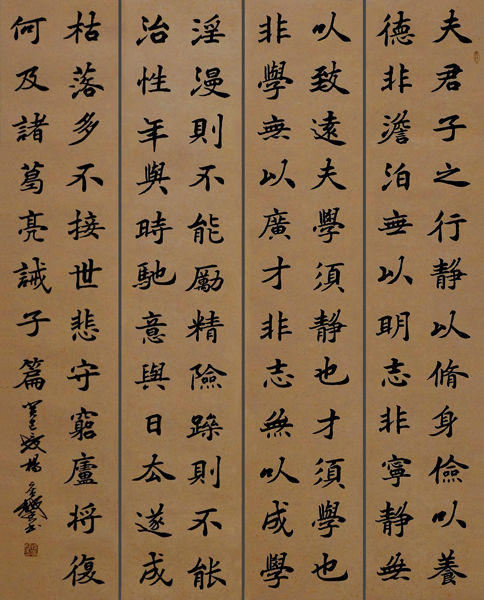 夫君子之行靜以脩身儉以養
德非澹泊無以明志非寧靜無
以致遠夫學須靜也才須學也
非學無以廣才非志無以成學
淫漫則不能勵精險躁則不能
治性年與時馳意與日去遂成
枯落多不接世悲守窮廬將復
何及諸葛亮誡子篇癸巳